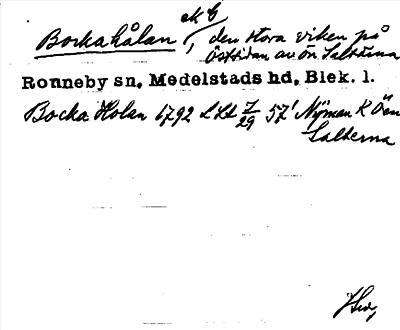 Bockahålan
den stora viken på
östsidan av ön Saltärna
Ronneby sn, Medelstads hd, Blek. l.
Bocka Holan 1792 LSt 7/29 57' Nyman K Ön
Salterna